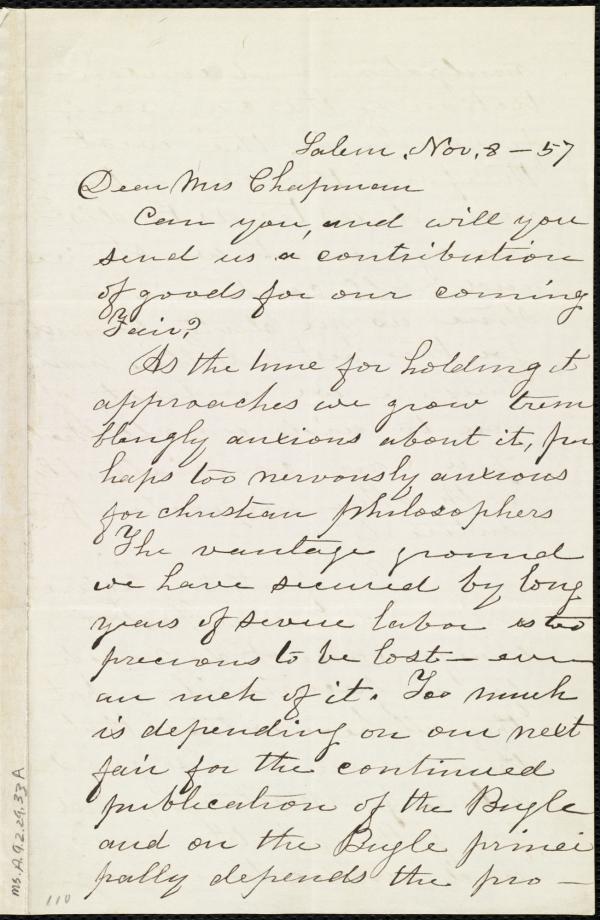 Salem, Nov. 8 - 57
Dear Mrs Chapman
Can you, and will you
send us a contribution
of goods for our coming
Fair?
As the time for holding it
approaches we grow trem
blingly anxious about it, per
haps too nervously anxious
for christian philosophers
The vantage ground
we have secured by long
years of severe labor is too
precious to be lost - even
an inch of it. Too much
is depending on our next
fair for the continued
publication of the Bugle
and on the Bugle princi
pally depends the pro -
Ms.A.9.2.29.33A
110